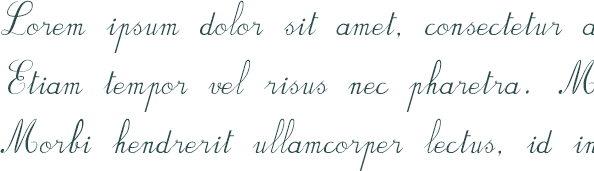 Lorem ipsum dolor sit amet, consectetur a
Etiam tempor vel risus nec pharetra. M
Morbi hendrerit ullamcorper lectus, id in